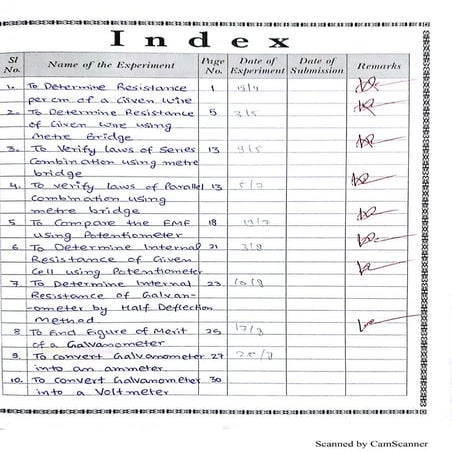 Index
Sl No. Name of the Experiment Page No. Date of Experiment Date of Submission Remarks
1. To Determine Resistance 1 15/4
per cm of a Given wire
2. To Determine Resistance 5 3/5
of Given wire using
Metre Bridge
3. To Verify laws of Series 13 9/5
Combination using metre
bridge
4. To verify laws of Parallel 13 5/7
Combination using
metre bridge
5. To Compare the EMF 18 19/7
using Potentiometer
6. To Determine Internal 21 3/8
Resistance of Given
Cell using Potentiometer
7. To Determine Internal 23 10/8
Resistance of Galvan-
-ometer by Half Deflection
Method
8. To find Figure of Merit 25 17/8
of a Galvanometer
9. To convert Galvanometer 27 25/8
into an ammeter.
10. To convert Galvanometer 30
into a Voltmeter
Scanned by CamScanner